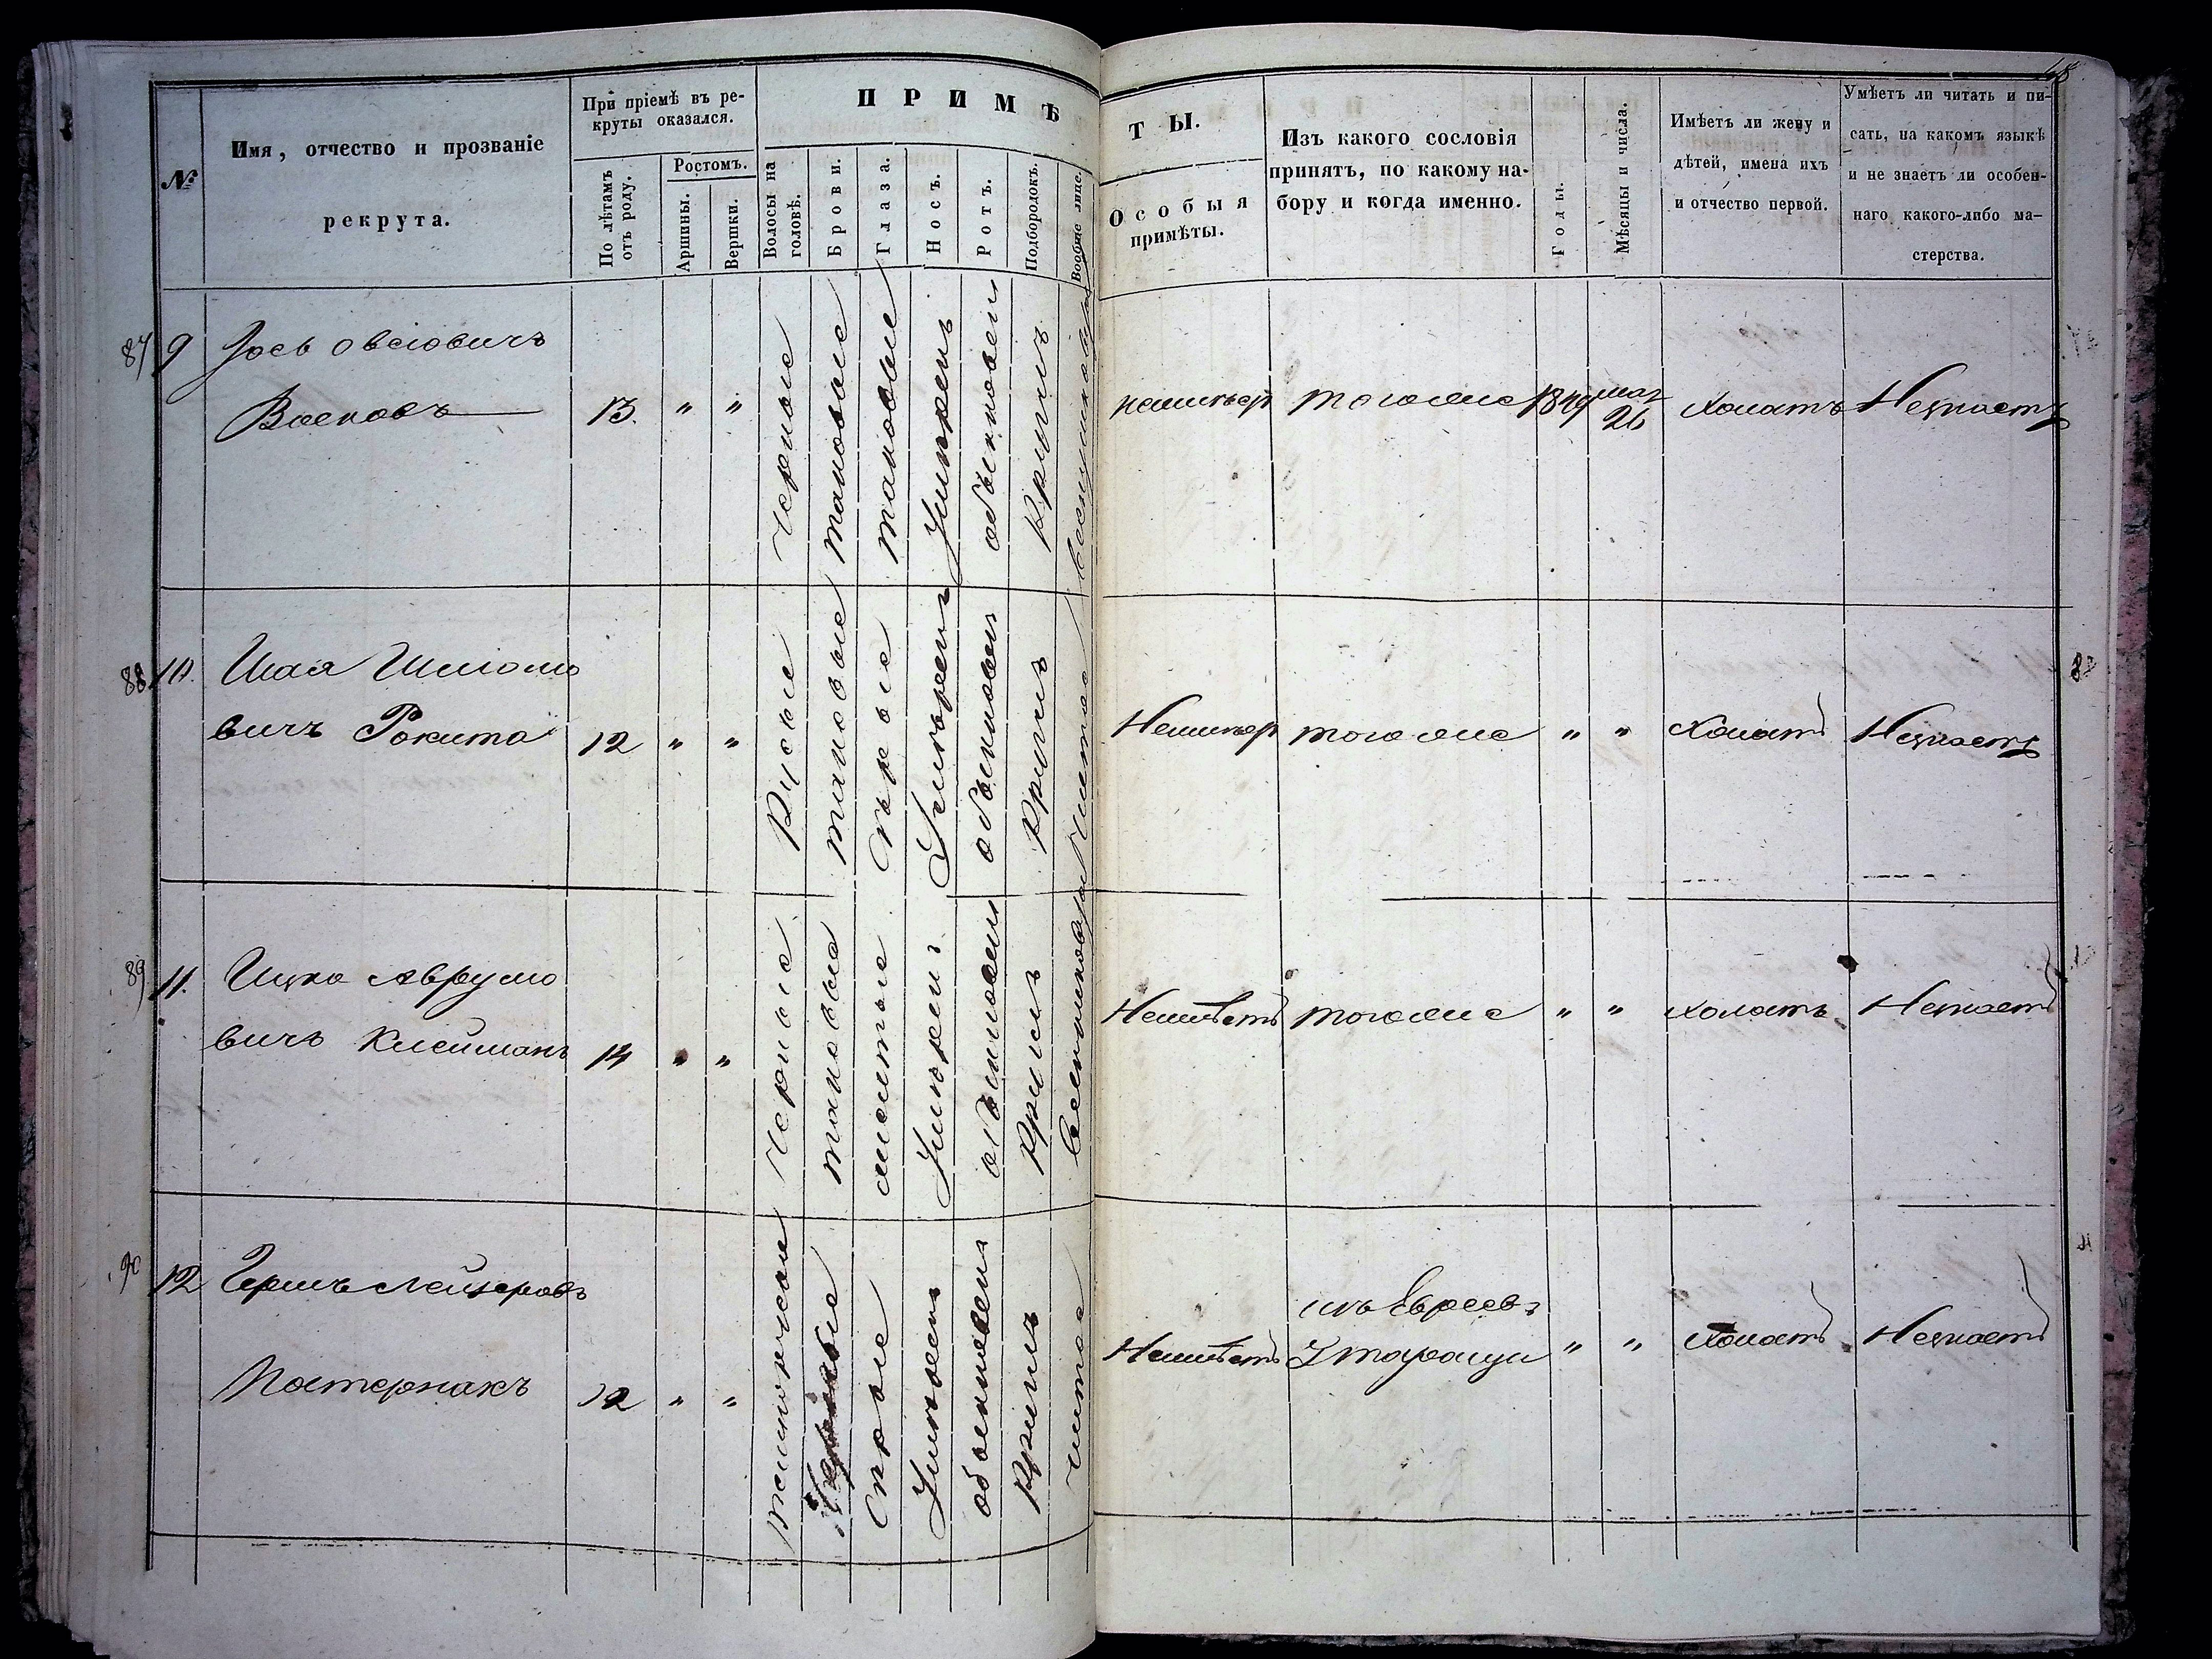 №
Имя, отчество и прозваніе
рекрута.
При пріемѣ въ ре-
круты оказался.
По лѣтамъ
отъ роду.
Ростомъ.
Аршины.
Вершки.
ПРИМѢ
Волосы на
головѣ.
Брови.
Глаза.
Носъ.
Ротъ.
Подбородокъ.
Вообще лице.
ТЫ.
Особыя
примѣты.
Изъ какого сословія
принятъ, по какому на-
бору и когда именно.
Годы.
Мѣсяцы и числа.
Имѣетъ ли жену и
дѣтей, имена ихъ
и отчество первой.
Умѣетъ ли читать и пи-
сать, на какомъ языкѣ
и не знаетъ ли особен-
наго какого-либо ма-
стерства.
87 9
13. " "
Черные
таковые
таковые
обыкновен
Кругл
тогоже
1849
26
Холостъ
Незнаетъ
88 10.
Шая Шміомо
вичъ Рокита
12 " "
Русые
таковые
Сѣрые
обыкновен
Кругл
Чистое
тогоже
" "
Холостъ
Незнаетъ
89 11.
Ицко Аврумо
вичъ Клейманъ
14 " "
Черные
таковые
обыкновен
Кругл
Неимѣетъ
тогоже
" "
Холостъ
Незнаетъ
90 12
Гершъ Лейзеровъ
Пастернакъ
12 " "
Сѣрые
обыкновен
Кругл
чистое
Неимѣетъ
изъ Евреевъ
Г Таращи
" "
Холостъ
Незнаетъ